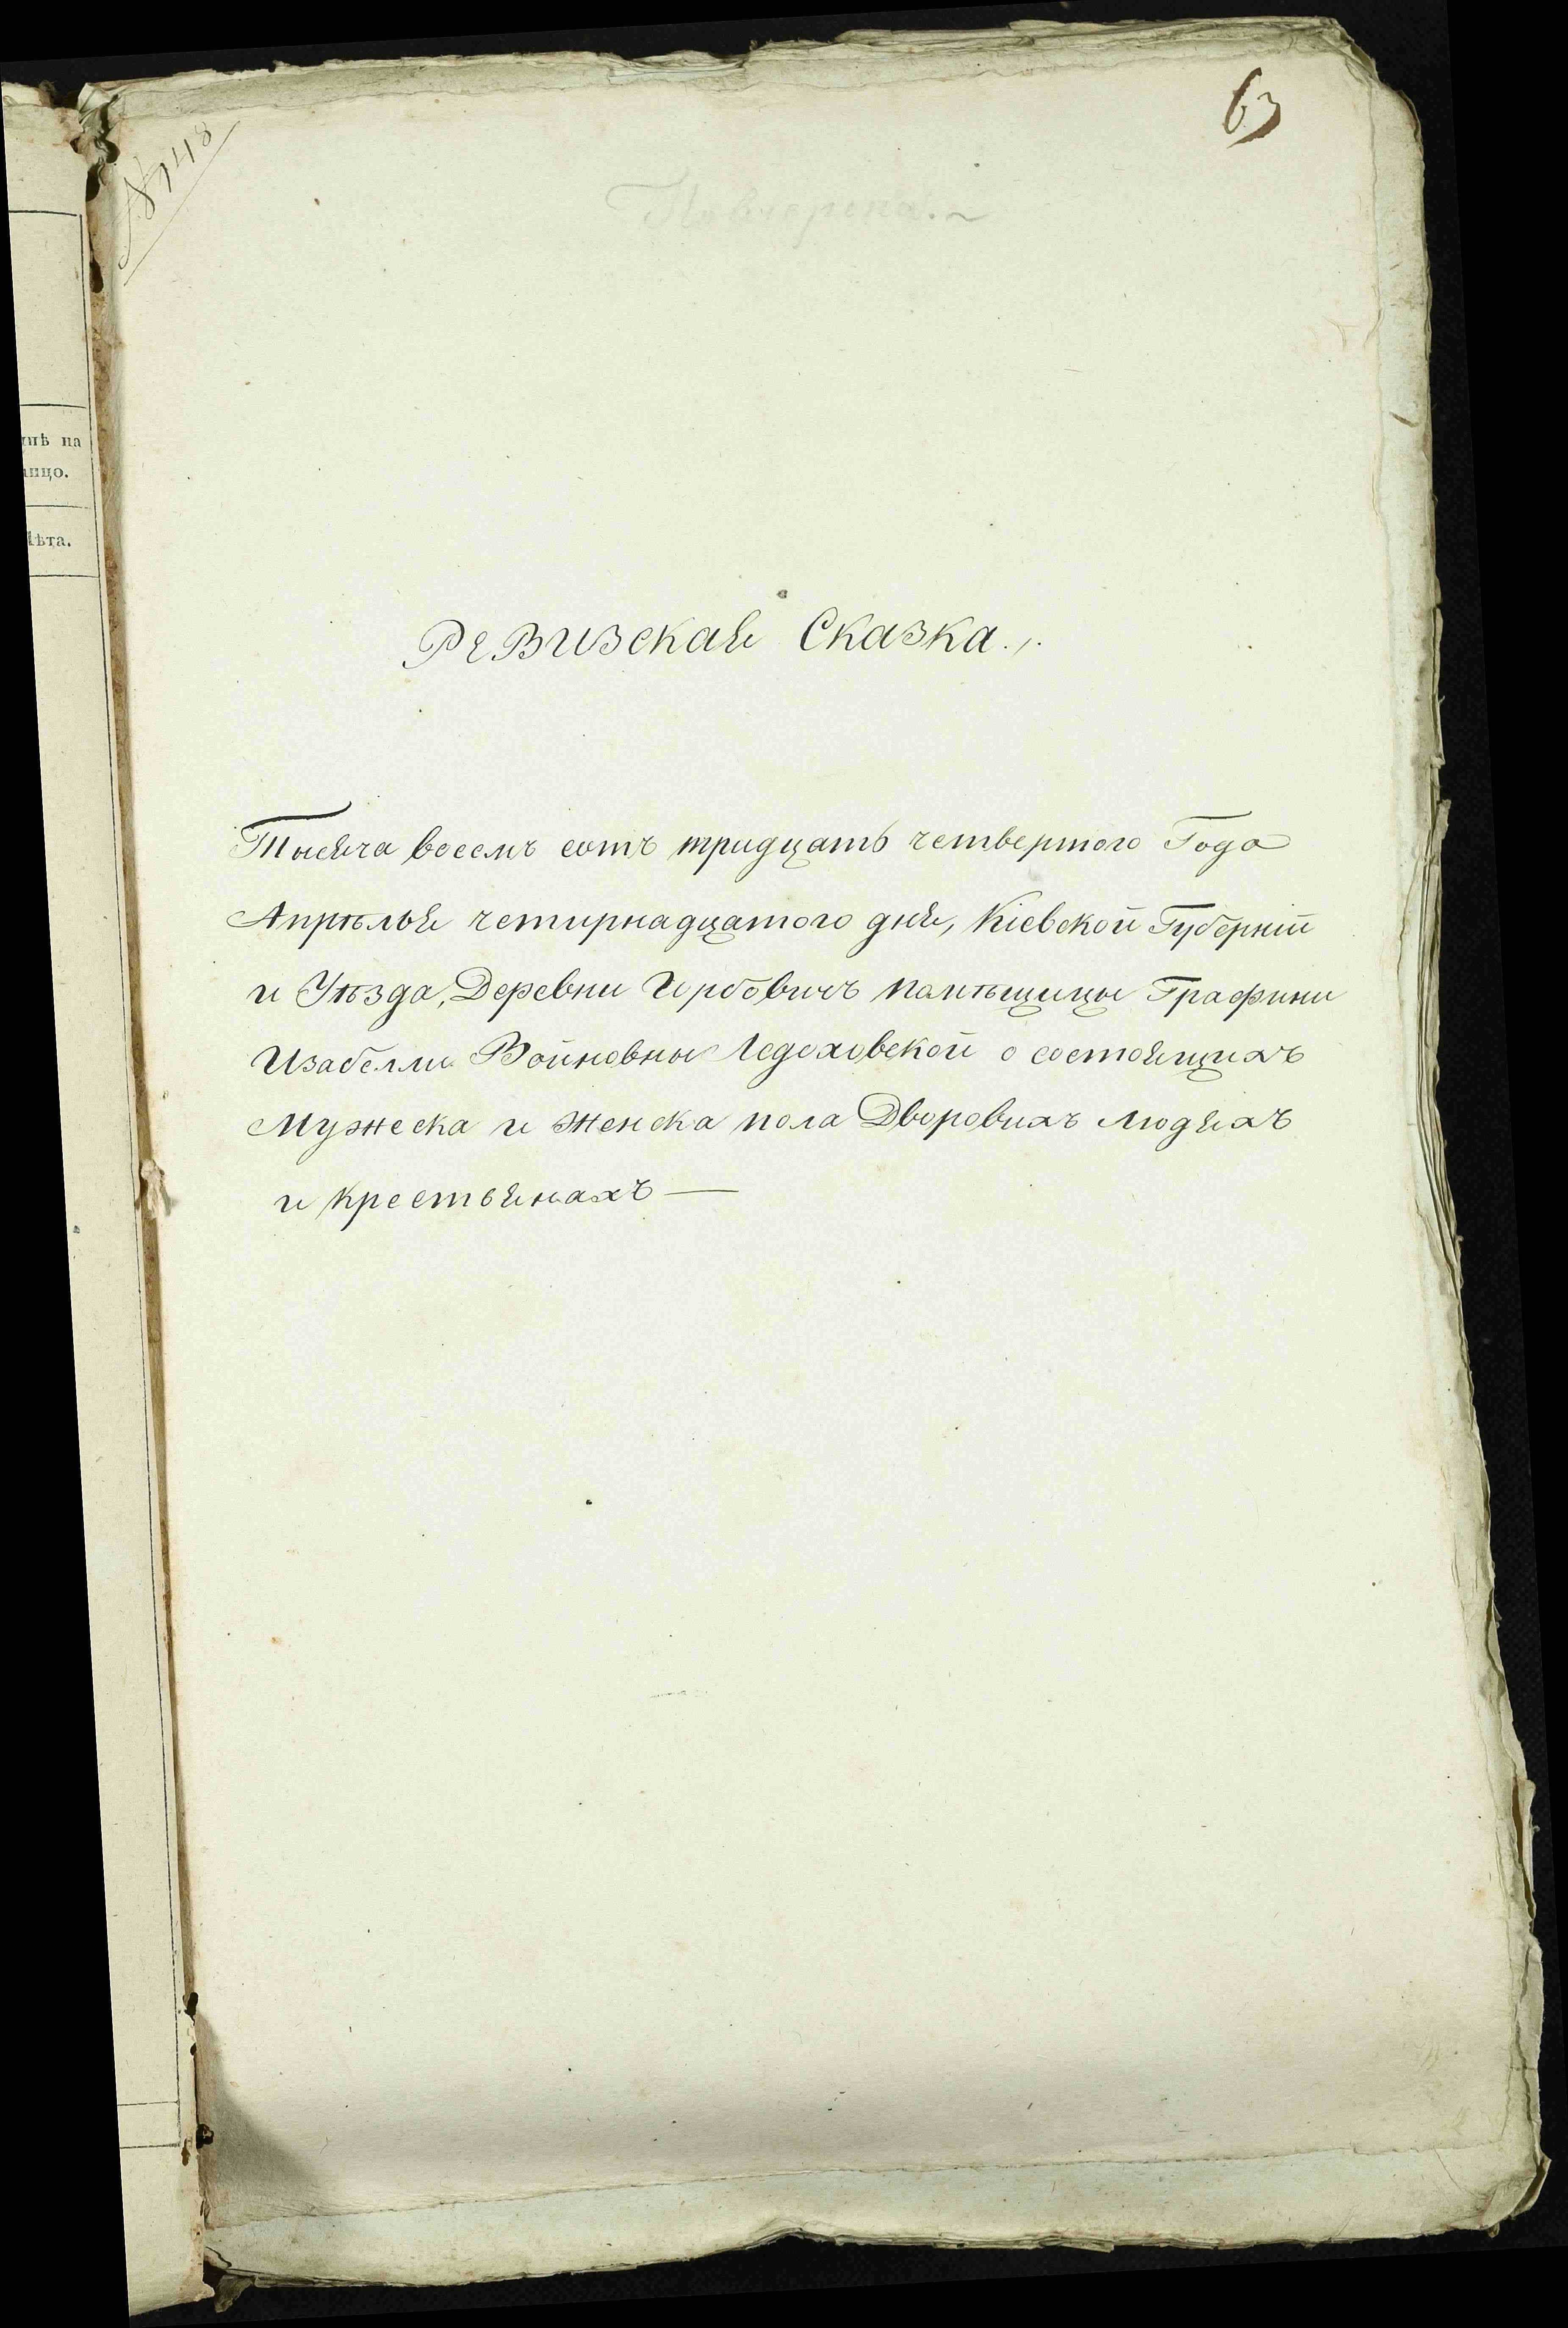 63
№ 148
нѣ на
лицо.
Лѣта.
Ревизская Сказка.
Тысяча восемъ сотъ тридцать четвертого Года
Апрѣлья четирнадцатого дня, Кіевской Губерніи
и Уѣзда, Деревни Помѣщицы Графини
Изабелли Войновны Ледоховской о состоящихъ
Мужеска и Женска пола Дворовихъ людяхъ
и крестьянахъ —